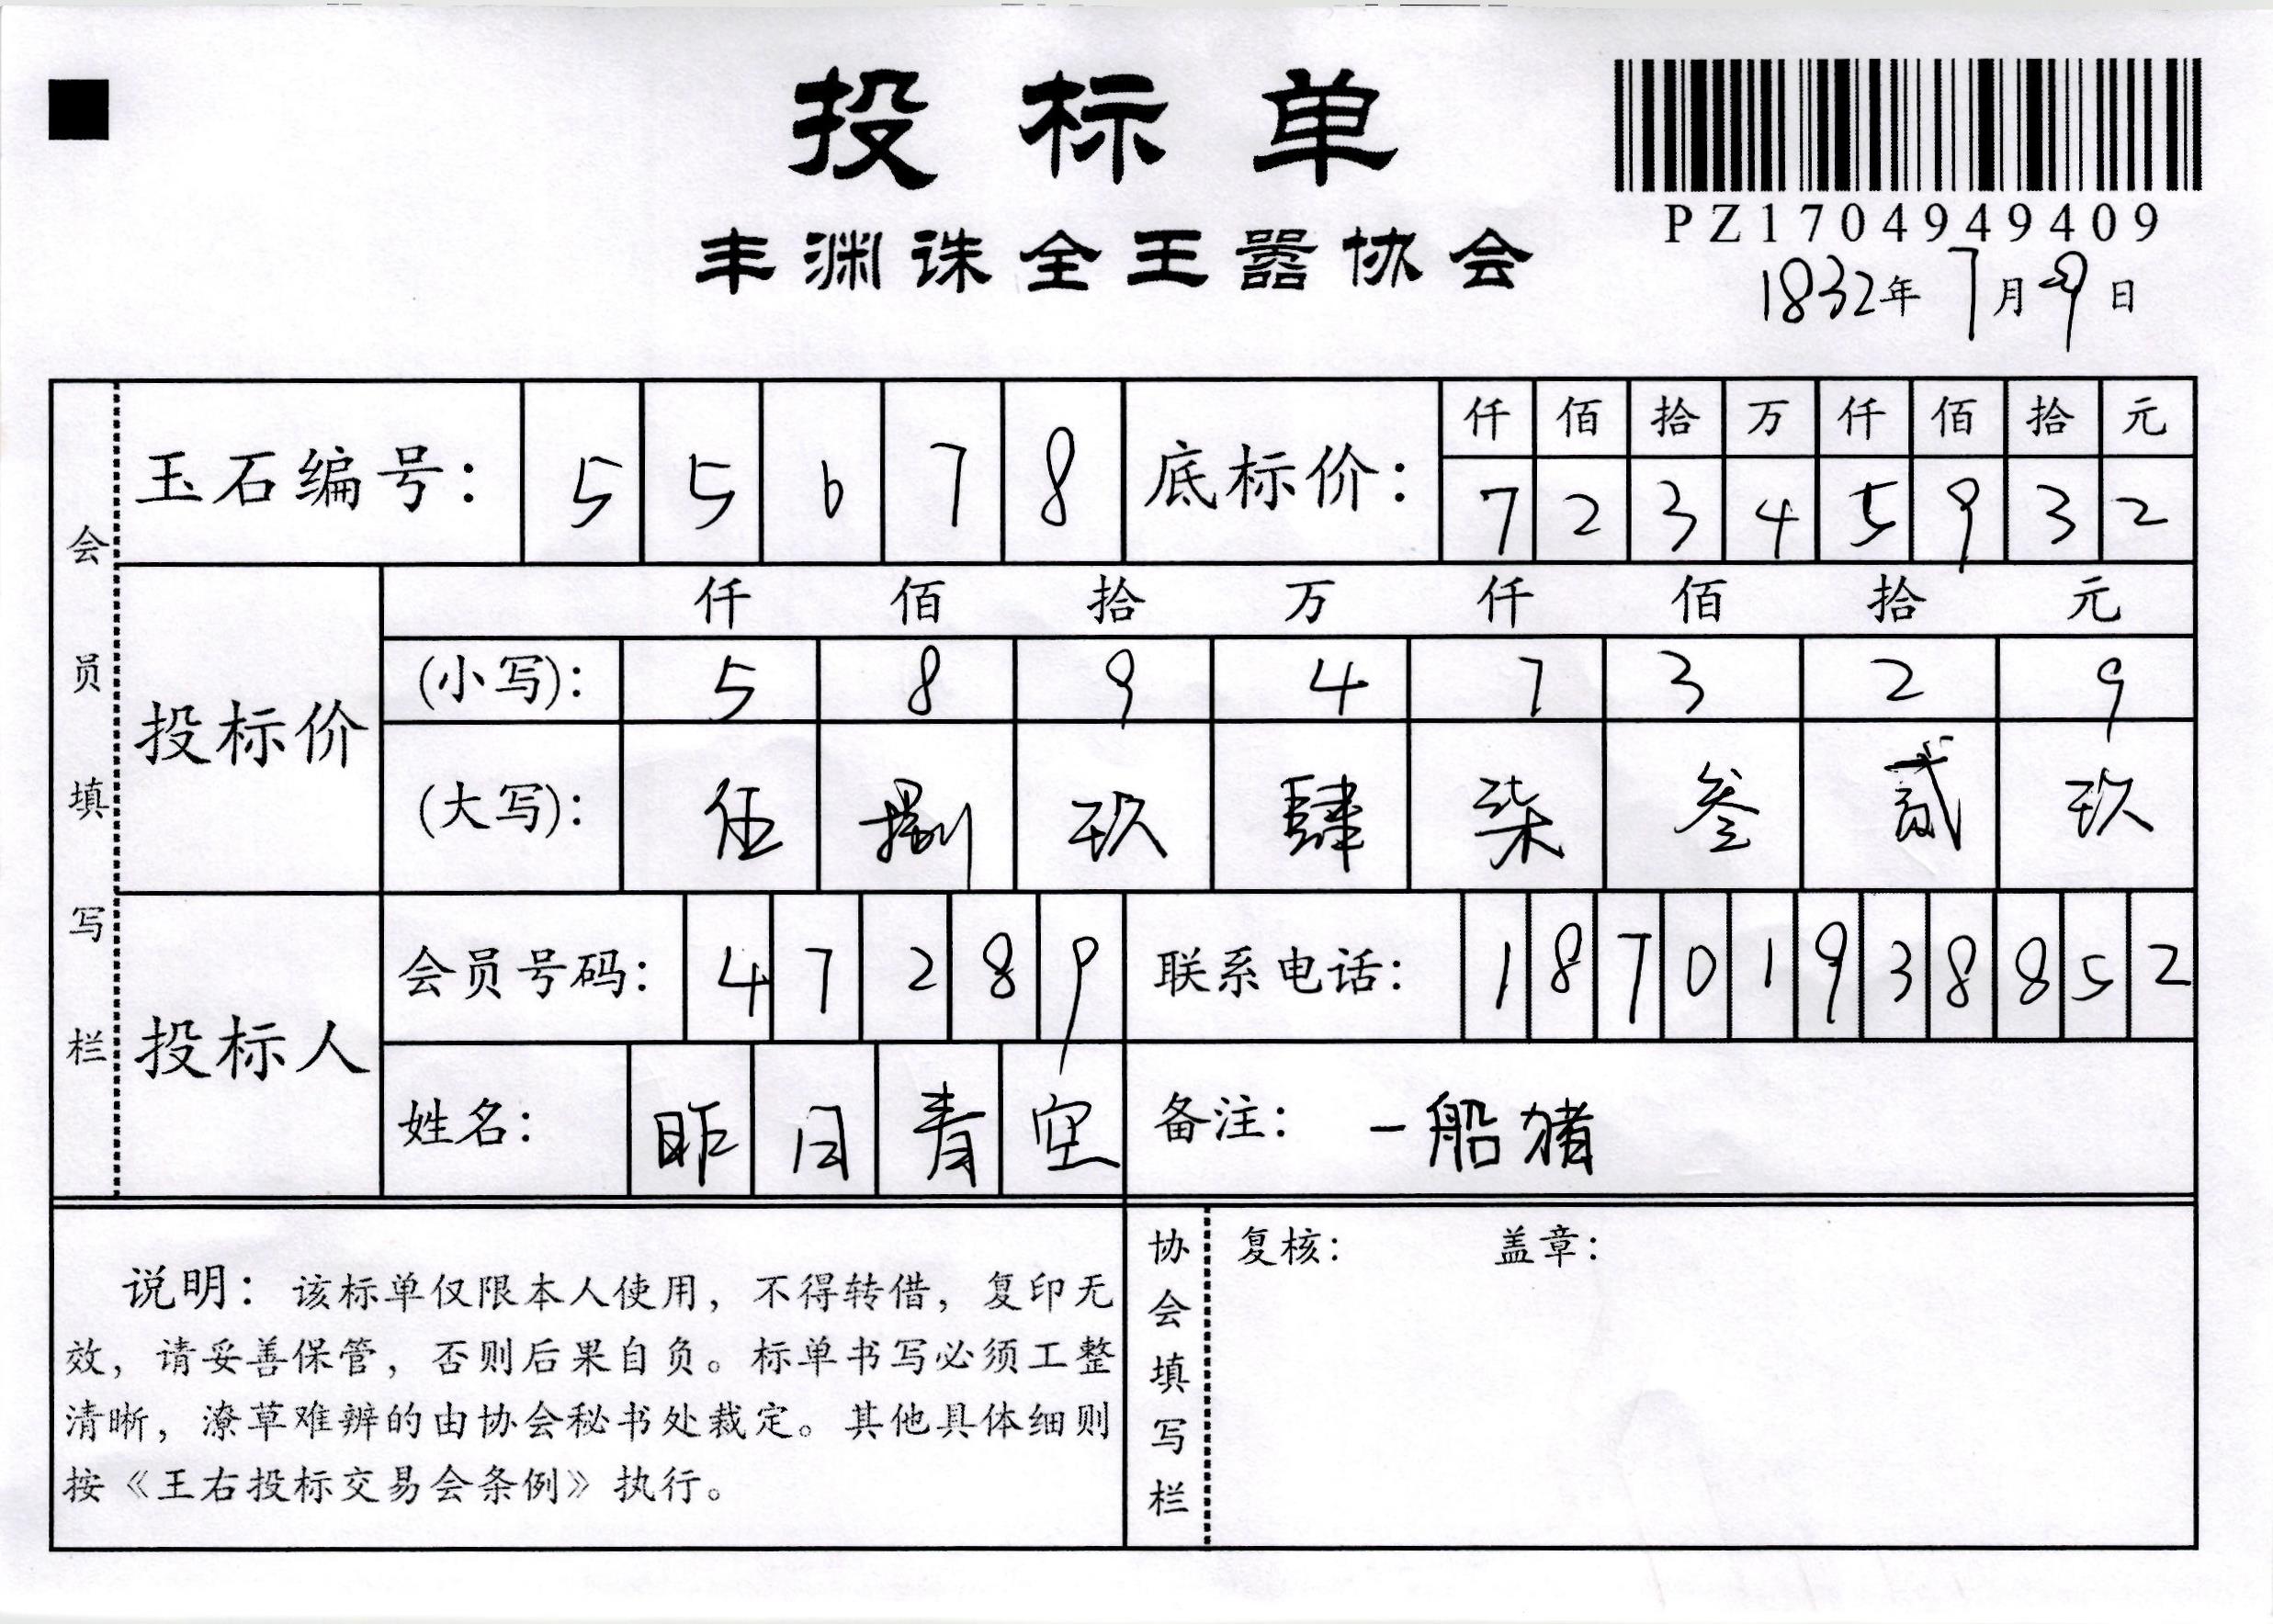 投标单
PZ1704949409
丰渊诛全王嚣协会
1832年7月9日
会员填写栏
玉石编号: 5 5 6 7 8
底标价: 仟 佰 拾 万 仟 佰 拾 元
7 2 3 4 5 9 3 2
投标价
仟 佰 拾 万 仟 佰 拾 元
(小写): 5 8 9 4 7 3 2 9
(大写): 伍 捌 玖 肆 柒 叁 贰 玖
投标人
会员号码: 4 7 2 8 9
联系电话: 1 8 7 0 1 9 3 8 8 5 2
姓名: 昨日青空
备注: 一船猪
说明: 该标单仅限本人使用, 不得转借, 复印无
效, 请妥善保管, 否则后果自负。标单书写必须工整
清晰, 潦草难辨的由协会秘书处裁定。其他具体细则
按《王右投标交易会条例》执行。
协会填写栏
复核: 盖章: